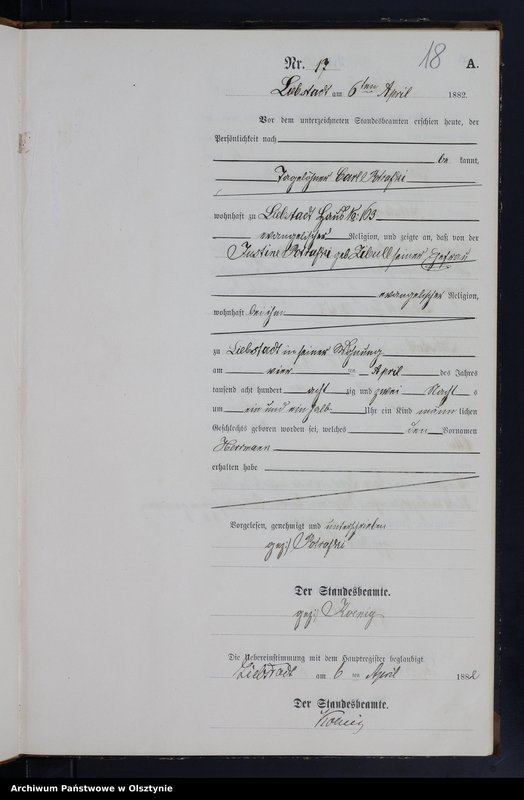 18
Nr. 17 A.
Liebstadt am 6ten April 1882.
Vor dem unterzeichneten Standesbeamten erschien heute, der
Persönlichkeit nach
be kannt,
Tagelöhner Carl
wohnhaft zu Liebstadt Haus № 163
evangelischer Religion, und zeigte an, daß von der
Justine geb. seiner Ehefrau
evangelischer Religion,
wohnhaft bei ihm
zu Liebstadt in seiner Wohnung
am vier ten April des Jahres
tausend acht hundert acht zig und zwei Nacht s
um ein und ein halb Uhr ein Kind männ lichen
Geschlechts geboren worden sei, welches den Vornamen
Herrmann
erhalten habe
Vorgelesen, genehmigt und unterschrieben
gez:)
Der Standesbeamte.
gez:) Koenig
Die Uebereinstimmung mit dem Hauptregister beglaubigt
Liebstadt am 6 ten April 1882
Der Standesbeamte.
Koenig
Archiwum Państwowe w Olsztynie